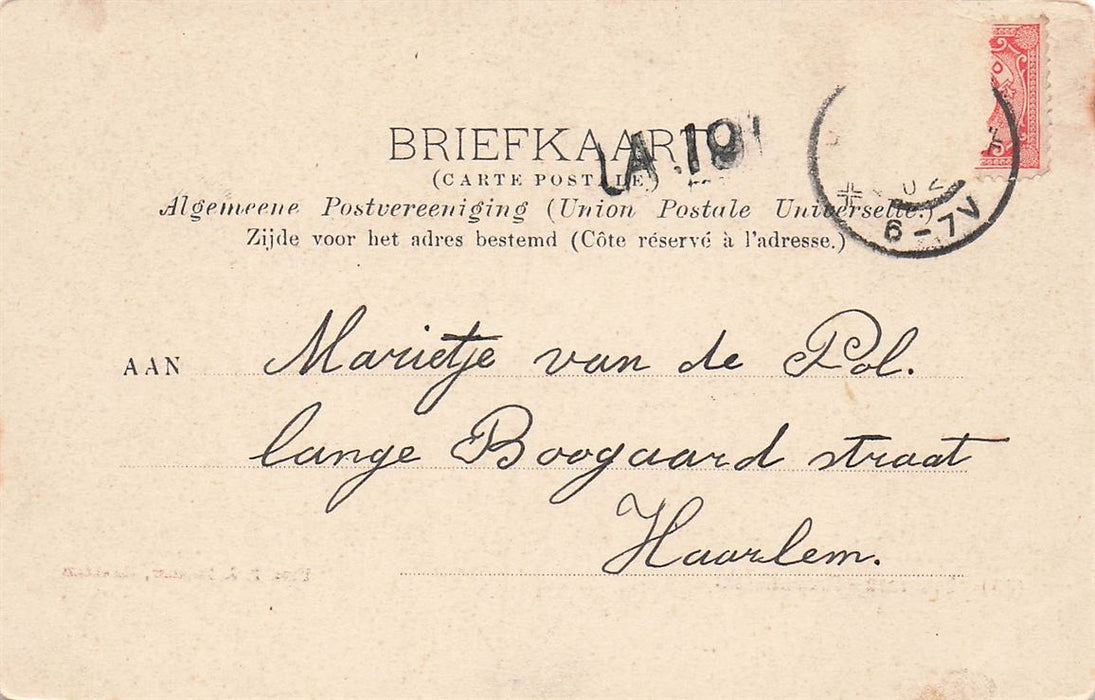 BRIEFKAART
(CARTE POSTALE)
Algemeene Postvereeniging (Union Postale Universelle.)
Zijde voor het adres bestemd (Côte réservé à l'adresse.)
6-7V
AAN Marietje van de Pol.
lange Boogaard straat
Haarlem.